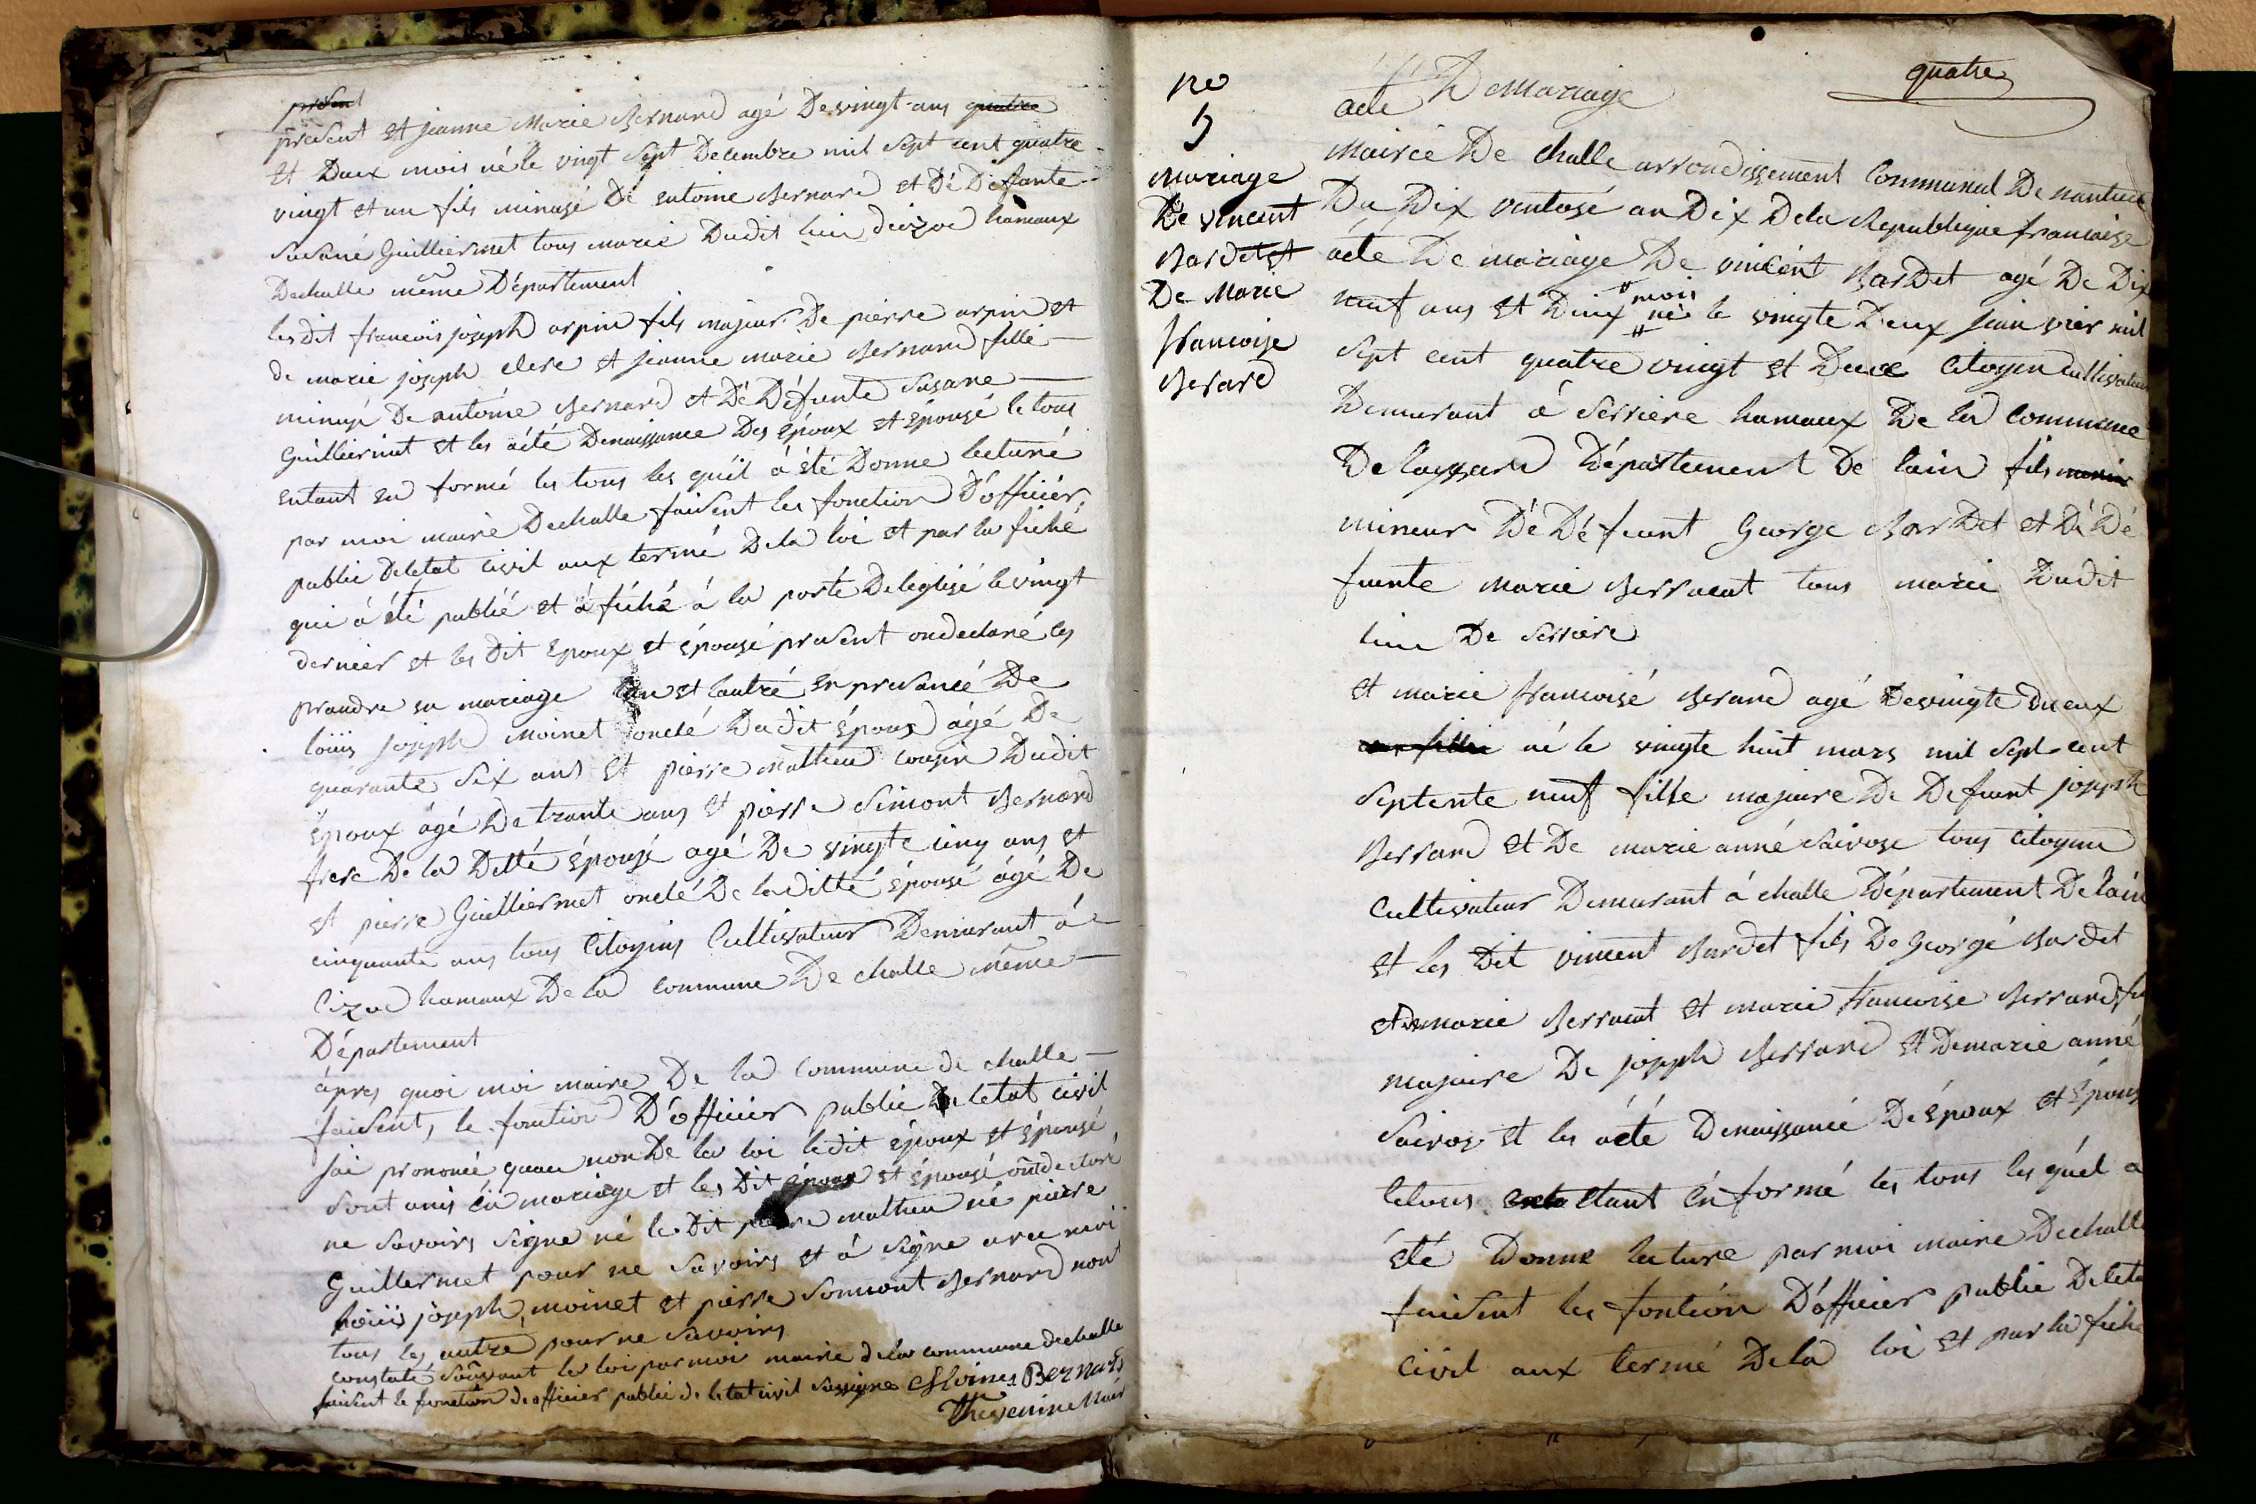 present
present et jeanne Marie Bernard agé De vingt ans quatre
et Deux mois né le vingt Sept Decembre mil Sept cent quatre
vingt et un fils minusé Dé entoine Bernard et Dé Défante
Susané Guilliermet tous marié Dudit lieu hamaux
Dechalle même Département
lesdit francois joseph arpin fils majeur De pierre arpin et
de marie joseph clere et jeanne marie Bernard fillé
minusé De antoine Bernard et Dé Défunté Susane
Guilliermet et les acté Denaissance Des Époux et Épousé le tous
entant en formé les tous les quël á été Donne lecturé
par moi maire Dechalle faisent les fonction D'officiér
public Deletat civil aux termé Dela loi et par la fiché
qui á été publié et áfiché á la porté Deleglisé le vingt
dernier et les Dit Epoux et épousé present ondeclaré les
prandre en mariage lun et lautré en presancé De
loüis joseph moinet onclé Dudit époux âgé De
quarante Six ans et pierre mathieu cousin Dudit
Époux âgé De trante ans et pierre Simont Bernard
frere De la Ditté épousé agé De vingte cinq ans et
et pierre Guilliermet onclé De laditté épousé âgé De
cinquante ans tous Citoyens Cultivateur Demurant á
Cizod hamaux De la commune De challe même
Département
ápres quoi moi maire De la commune de challe
faisent, le fontion D'officier public De letat civil
jai prononcé quau non De la loi ledit époux et épousé
Sont unis én mariage et les Dit époux et épousé ondeclaré
ne Savoirs Signe né le Dit pierre mathieu né pierre
Guillermet pour ne Savoirs et á Signe avec moi
loüis joseph moinet et pierre Somont Bernard non
tous les autre pour ne Savoirs
constaté Sùivant la loi par moi maire dela commune dechalle
faisent le fonction de officier public de letat civil Sussigne Moinet Bernard
Thevenin Mair
no
5
Mariage
De vincent
Bardet et
De Marie
francoise
Berard
quatre
acte De Mariage
Mairie De challe arrondissement Communal De nantua
Du Dix ventosé an Dix Dela Republique francaise
acte De mariage De vincent Bardet agé De Dix
neuf ans et Deux mois né le vingte Deux janvier mil
Sept cent quatre vingt et Deux Citoyen Cultivateur
Demurant á Serriere hamaux De la Commune
De layssard Département De lain fils
mineur Dé Défeunt George Bardet et Dé Dé
funte Marie Berraent tous marié Dudit
lieu De Serriere
et marie francoisé Berard agé Devingte Dueux
né le vingte huit mars mil Sept cent
Septente neuf fille majure De Defeunt joseph
Berrard et De marie anné Sairose tous Citoyen
Cultivateur Demurant á challe Département De lain
et les Dit vincent Bardet fils De Georgé Bardet
et Demarie Berraent et marie francoise Berrard fi
majuire De joseph Berrard et Demarie anné
Sairose et les acté Denaissancé De époux et Épous
letous etant énformé les tous les quél a
été Donne lecture par moi maire Dechalle
faisent les fontion D'officier public Deleta
civil aux termé Dela loi et par la fiche